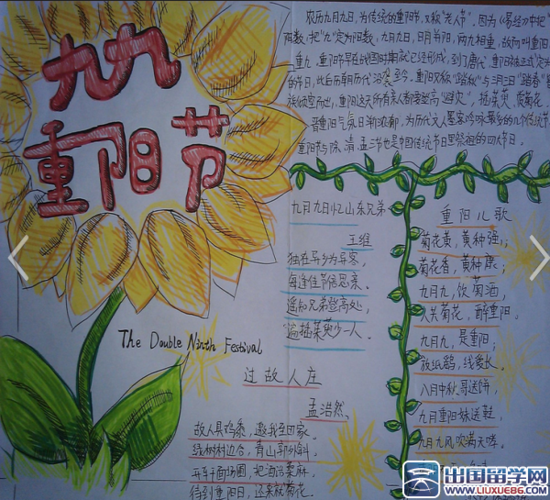 九九
重阳节
农历九月九日,为传统的重阳节,又称"老人节"。因为《易经》中把
阳数,把"九"定为阳数,九月九日,日月并阳,两九相重,故而叫重阳
重九,重阳节早在战国时期就已经形成,到了唐代,重阳被正式定为
的节日,此后历朝历代沿袭至今。重阳又称"踏秋"与三月三日"踏春"皆
族倾室而出,重阳这天所有亲人都要登高"避灾",插茱萸,赏菊花。
重阳节与除、清、盂三节也是中国传统节日里祭祖的四大节日。
九月九日忆山东兄弟
王维
独在异乡为异客,
每逢佳节倍思亲。
遥知兄弟登高处,
遍插茱萸少一人。
The Double Ninth Festival
过故人庄
孟浩然
故人具鸡黍,邀我至田家。
绿树村边合,青山郭外斜。
开轩面场圃,把酒话桑麻。
待到重阳日,还来就菊花。
重阳儿歌
菊花黄,黄种强;
菊花香,黄种康;
九月九,饮菊酒,
人共菊花,醉重阳。
九月九,是重阳;
放纸鹞,线爱长。
八月中秋哥送饼,
九月重阳妹送鞋,
九月九风吹满天嗟。
出国留学网
WWW.LIUXUE86.COM